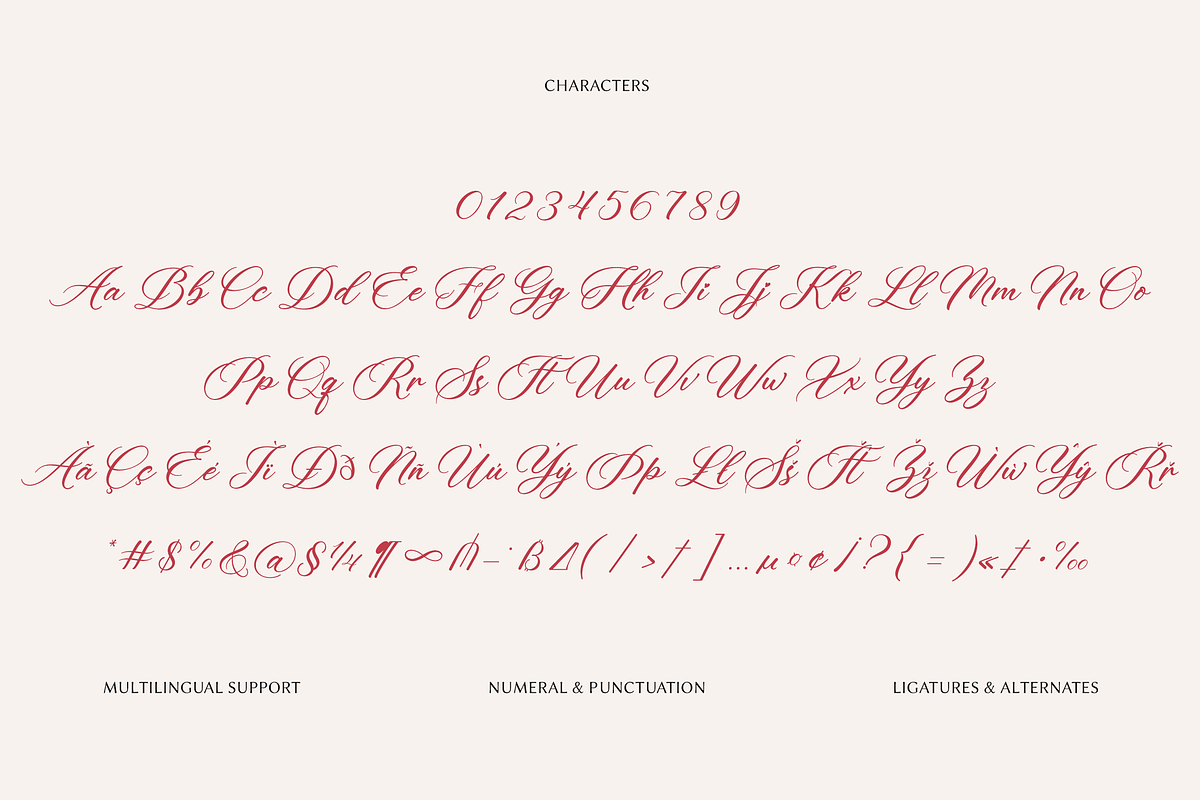 CHARACTERS
0123456789
Aa Bb Cc Dd Ee Ff Gg Hh Ii Jj Kk Ll Mm Nn Oo
Pp Qq Rr Ss Tt Uu Vv Ww Xx Yy Zz
Àã Çç Éé Ìï Ðð Ññ Ùú Ýý Þþ Łł Šš Ťť Žž Ẁẅ Ŷŷ Řř
* # $ % & @ § ¼ ¶ ∞ – · ß ∆ ( / > † ] … µ ¤ ¢ ? { = ) « ‡ • ‰
MULTILINGUAL SUPPORT
NUMERAL & PUNCTUATION
LIGATURES & ALTERNATES